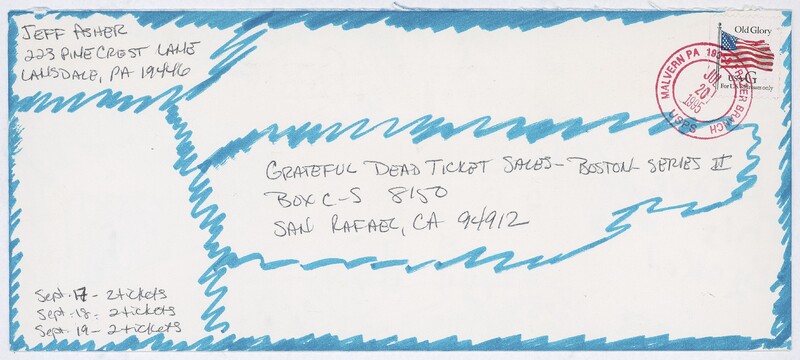 JEFF ASHER
223 PINECREST LANE
LANSDALE, PA 19446
Old Glory
USA G
For U.S. addresses only
MALVERN PA FRAZER BRANCH
USPS
20
1995
GRATEFUL DEAD TICKET SALES - BOSTON - SERIES II
BOX C-S 8150
SAN RAFAEL, CA 94912
Sept. 17 - 2 tickets
Sept. 18 - 2 tickets
Sept. 19 - 2 tickets